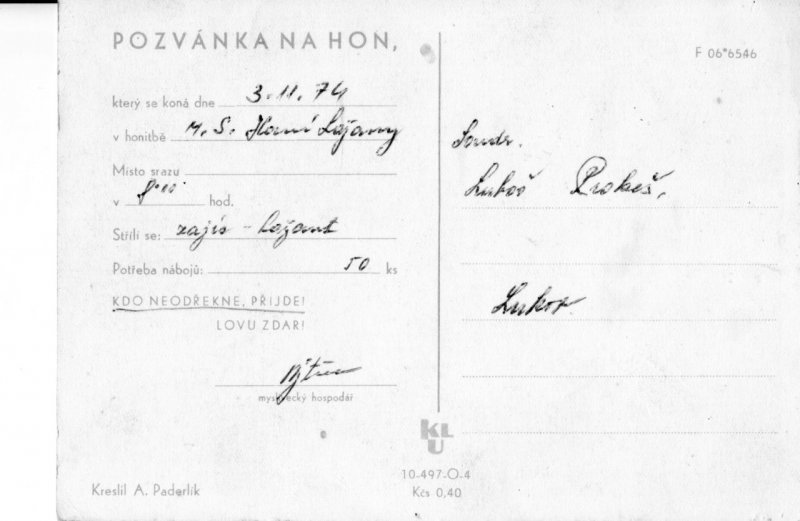 POZVÁNKA NA HON,
který se koná dne 3.11.74
v honitbě M.S. Horní Lažany
Místo srazu
v 8.00 hod.
Střílí se: zajíc - bažant
Potřeba nábojů: 50 ks
KDO NEODŘEKNE, PŘIJDE!
LOVU ZDAR!
myslivecký hospodář
Kreslil A. Paderlík
F 06*6546
Soudr.
Luboš Prokeš,
Lukov
KLU
10-497-O-4
Kčs 0,40